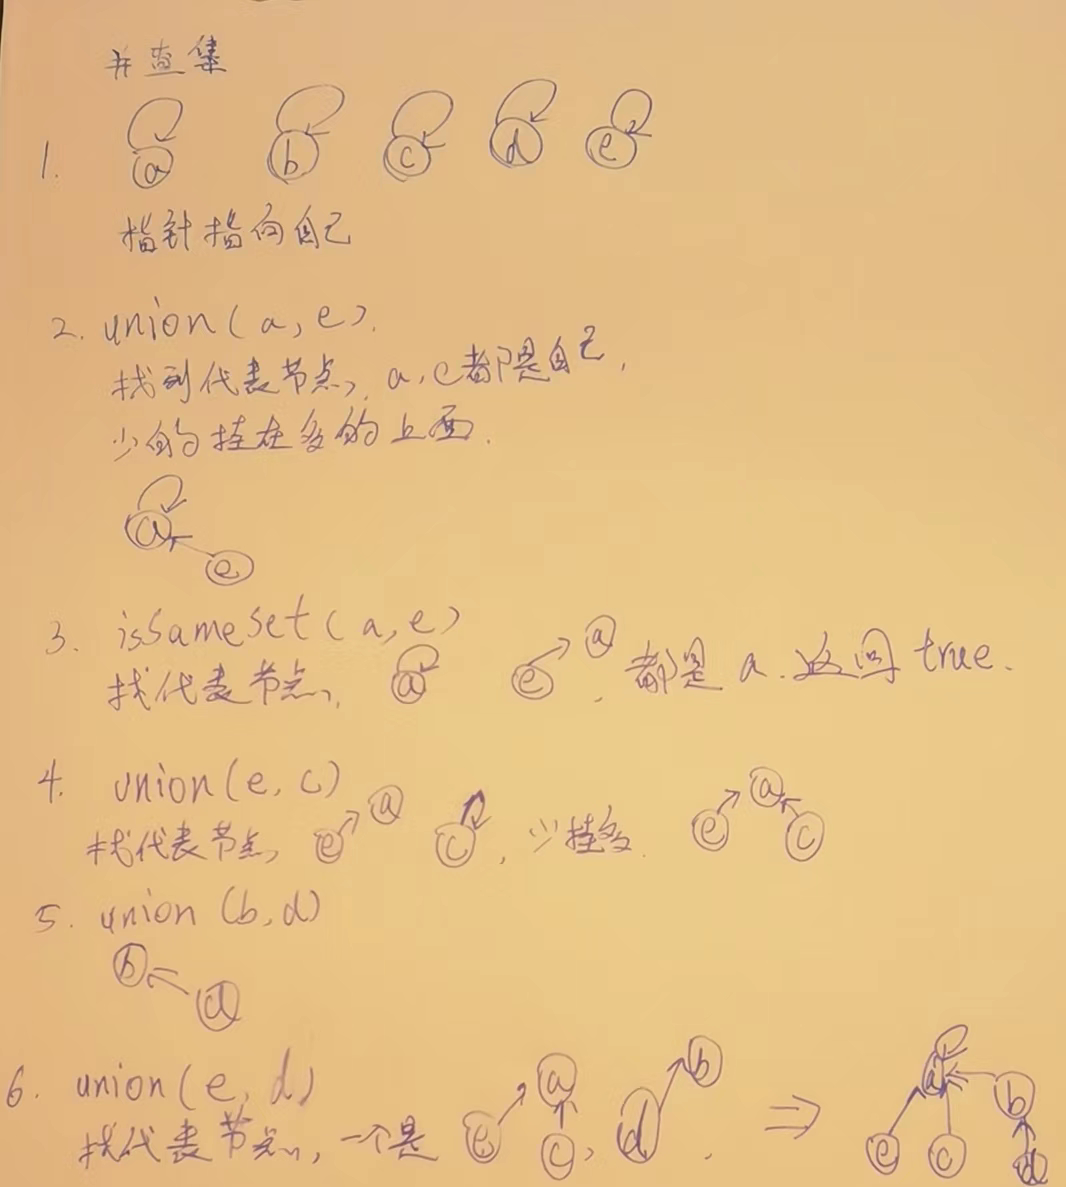 并查集
1. a b c d e
指针指向自己
2. union(a, e).
找到代表节点, a, e都是自己,
少的挂在多的上面.
a
e
3. isSameSet(a, e)
找代表节点, a e a, 都是 a. 返回 true.
4. union(e, c)
找代表节点, e a c, 少挂多. e a c
5. union (b, d)
b
d
6. union(e, d)
找代表节点, 一个是 e a c, d b. ⇒ a e c b d